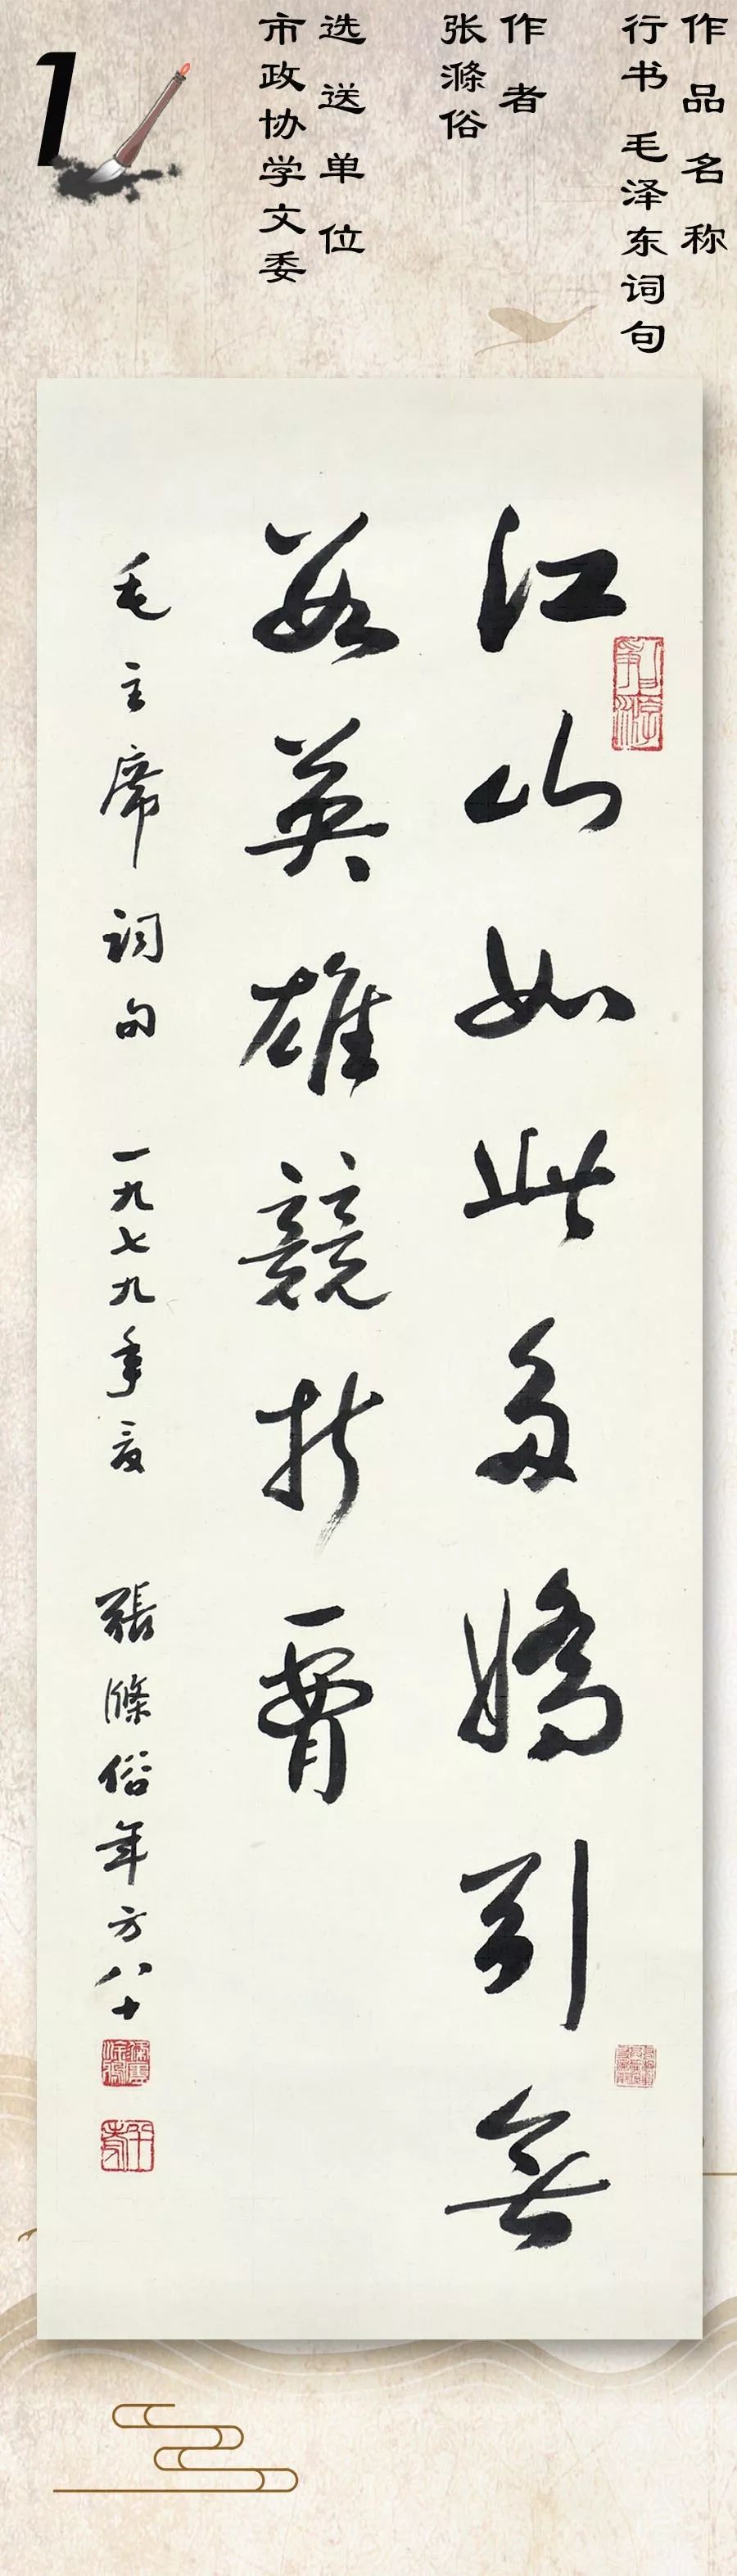 作品名称
行书 毛泽东词句
作者
张滌俗
选送单位
市政协学文委
1
江山如此多嬌引無
數英雄競折腰
毛主席詞句 一九七九年夏 張滌俗年方八十